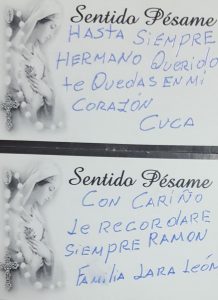 Sentido Pésame
HASTA SIEMPRE
HERMANO QUERIDO
te QUEDAS EN MI
CORAZÓN
CUCA
Sentido Pésame
CON CARIÑO
te RECORDARE
SIEMPRE RAMON
FAMILIA LARA LEÓN